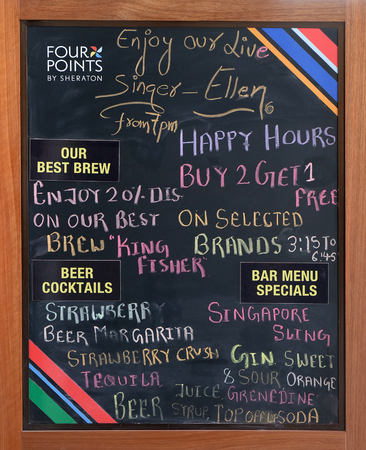 FOUR
POINTS
BY SHERATON
Enjoy our Live
Singer - Ellen
from 7pm
HAPPY HOURS
BUY 2 GET 1
FREE
ON SELECTED
BRANDS 3:15 TO
6:45
OUR
BEST BREW
ENJOY 20% DIS
ON OUR BEST
BREW "KING
FISHER"
BEER
COCKTAILS
STRAWBERRY
BEER MARGARITA
STRAWBERRY CRUSH
TEQUILA
BEER
BAR MENU
SPECIALS
SINGAPORE
SLING
GIN SWEET
& SOUR ORANGE
JUICE, GRENEDINE
SYRUP, TOP OFF SODA